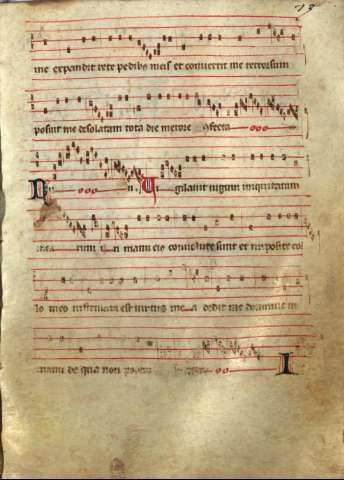 13
me expandit rete pedibus meis et convertit me retrorsum
posuit me desolatam tota die merore confecta
N n. V igilavit iugum iniquitatum
mearum in manu eius convolute sunt et imposite col
lo meo infirmata est virtus mea dedit me dominus in
manu de qua non potero I